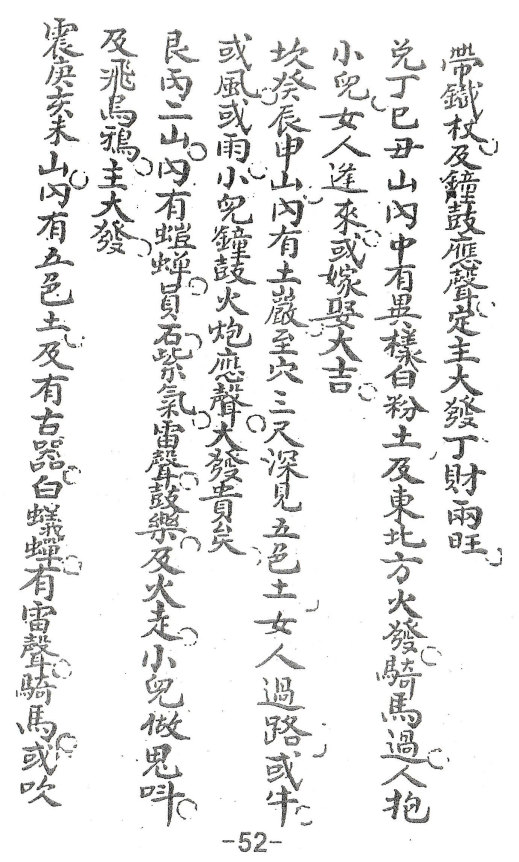 帶鐵杖及鐘鼓應聲定主大發丁財兩旺
兌丁巳丑山內中有異樣白粉土及東北方火發騎馬過人抱
小兒女人逢來或嫁娶大吉
坎癸辰申山內有土巖至穴三尺深見五色土女人過路或牛
或風或雨小兒鐘鼓火炮應聲大發貴矣
艮丙二山內有螘蟬員石紫氣雷聲鼓樂及火走小兒做鬼叫
及飛鳥鴉主大發
震庚亥未山內有五色土及有古器白蟻蟬有雷聲騎馬或吹
-52-